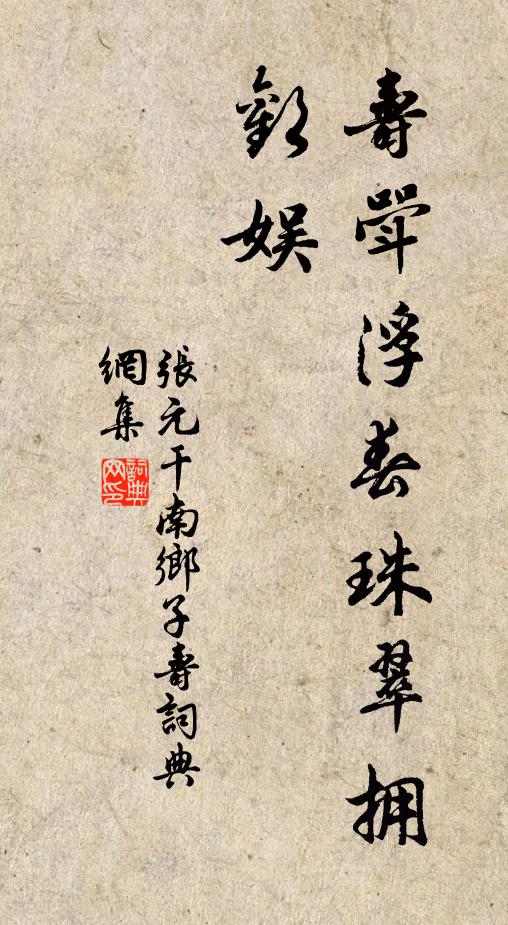 壽斝浮春珠翠拥
歡娱
張元干南鄉子壽詞典
網集
詞典
网印